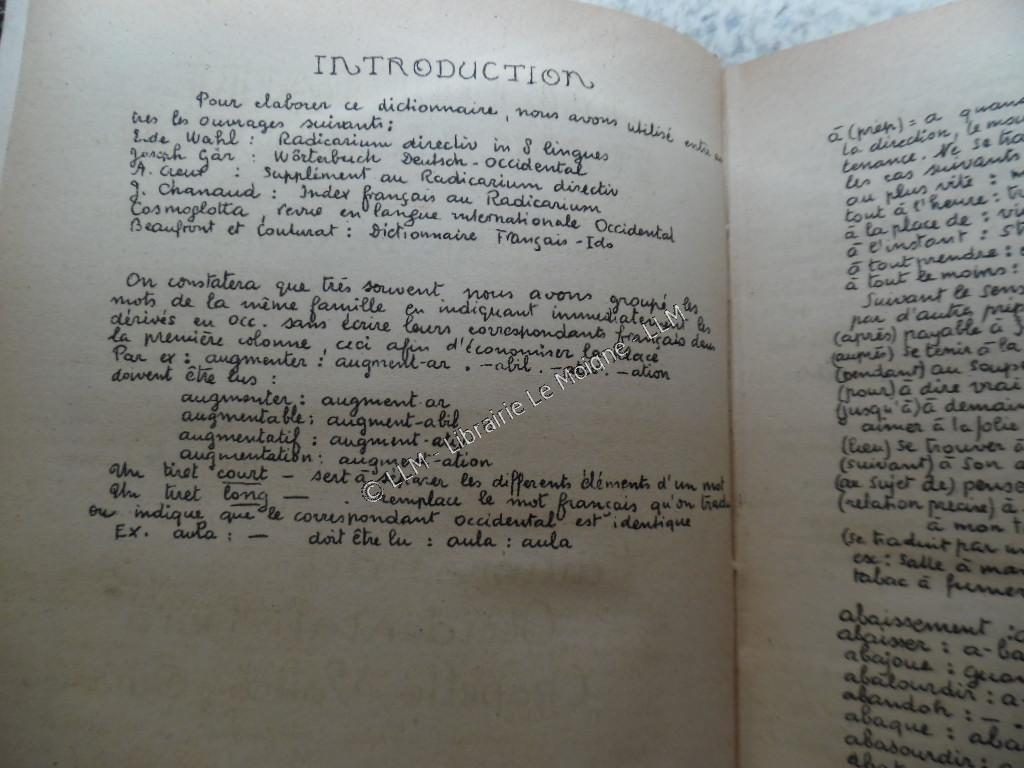 INTRODUCTION
Pour elaborer ce dictionnaire, nous avons utilisé entre au
tres les ouvrages suivants:
E. de Wahl : Radicarium directiv in 8 lingues
Joseph Gär : Wörterbuch Deutsch-Occidental
A. Creux : Supplément au Radicarium directiv
J. Chanaud : Index français au Radicarium
Cosmoglotta, revue en langue internationale Occidental
Beaufront et Couturat : Dictionnaire Français-Ido
On constatera que très souvent nous avons groupé les
mots de la même famille en indiquant immediatement les
dérivés en occ. sans écrire leurs correspondants français dans
la première colonne, ceci afin d'économiser la place
Par ex : augmenter : augment-ar . -abil . -ativ . -ation
doivent être lus :
augmenter : augment-ar
augmentable : augment-abil
augmentatif : augment-ativ
augmentation : augment-ation
Un tiret court - sert à séparer les differents éléments d'un mot
Un tiret long — . remplace le mot français qu'on tradu
ou indique que le correspondant occidental est identique
Ex. aula : — doit être lu : aula : aula
© LLM - Librairie Le Moigne LLM
à (prép) = a quand
la direction, le mou
tenance. Ne se tra
les cas suivants
au plus vite : m
tout à l'heure : t
à la place de : vi
à l'instant : st
à tout prendre :
à tout le moins :
Suivant le sens
par d'autre prép
(après) payable à
(auprès) se tenir à la
(pendant) au soupe
(pour) à dire vrai
(jusqu'à) à demain
aimer à la folie
(lieu) se trouver à
(suivant) à son a
(au sujet de) pense
(relation précise) à
à mon t
(se traduit par un
ex : salle à man
tabac à fumer
abaissement : a
abaisser : a-ba
abajoue : guan
abalourdir : a
abandon : — .
abaque : aba
abasourdir : a